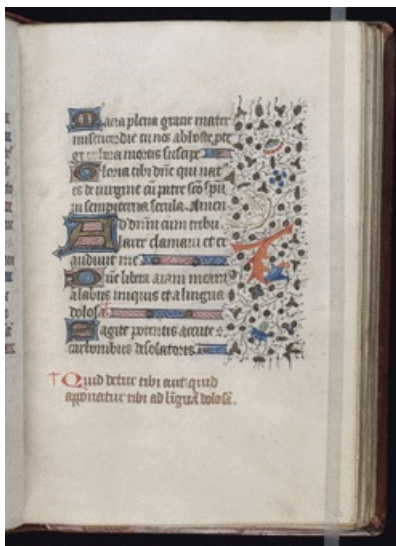 Maria plena gracie mater
misericordie tu nos ab hoste p̱te
ge et hora mortis suscipe
Gloria tibi dn̄e qui nat'
es de virgine cū patre sc̄o spū
in sempiterna secula. Amen
Ad dn̄m cum tribu
larer clamaui et ex
audiuit me
Dn̄e libera aīam meam
a labiis iniquis et a lingua
dolosa †
Sagite potentis accute :
carbonibus desolatoris
† Quid detur tibi aut quid
apponatur tibi ad līguā dolosā.